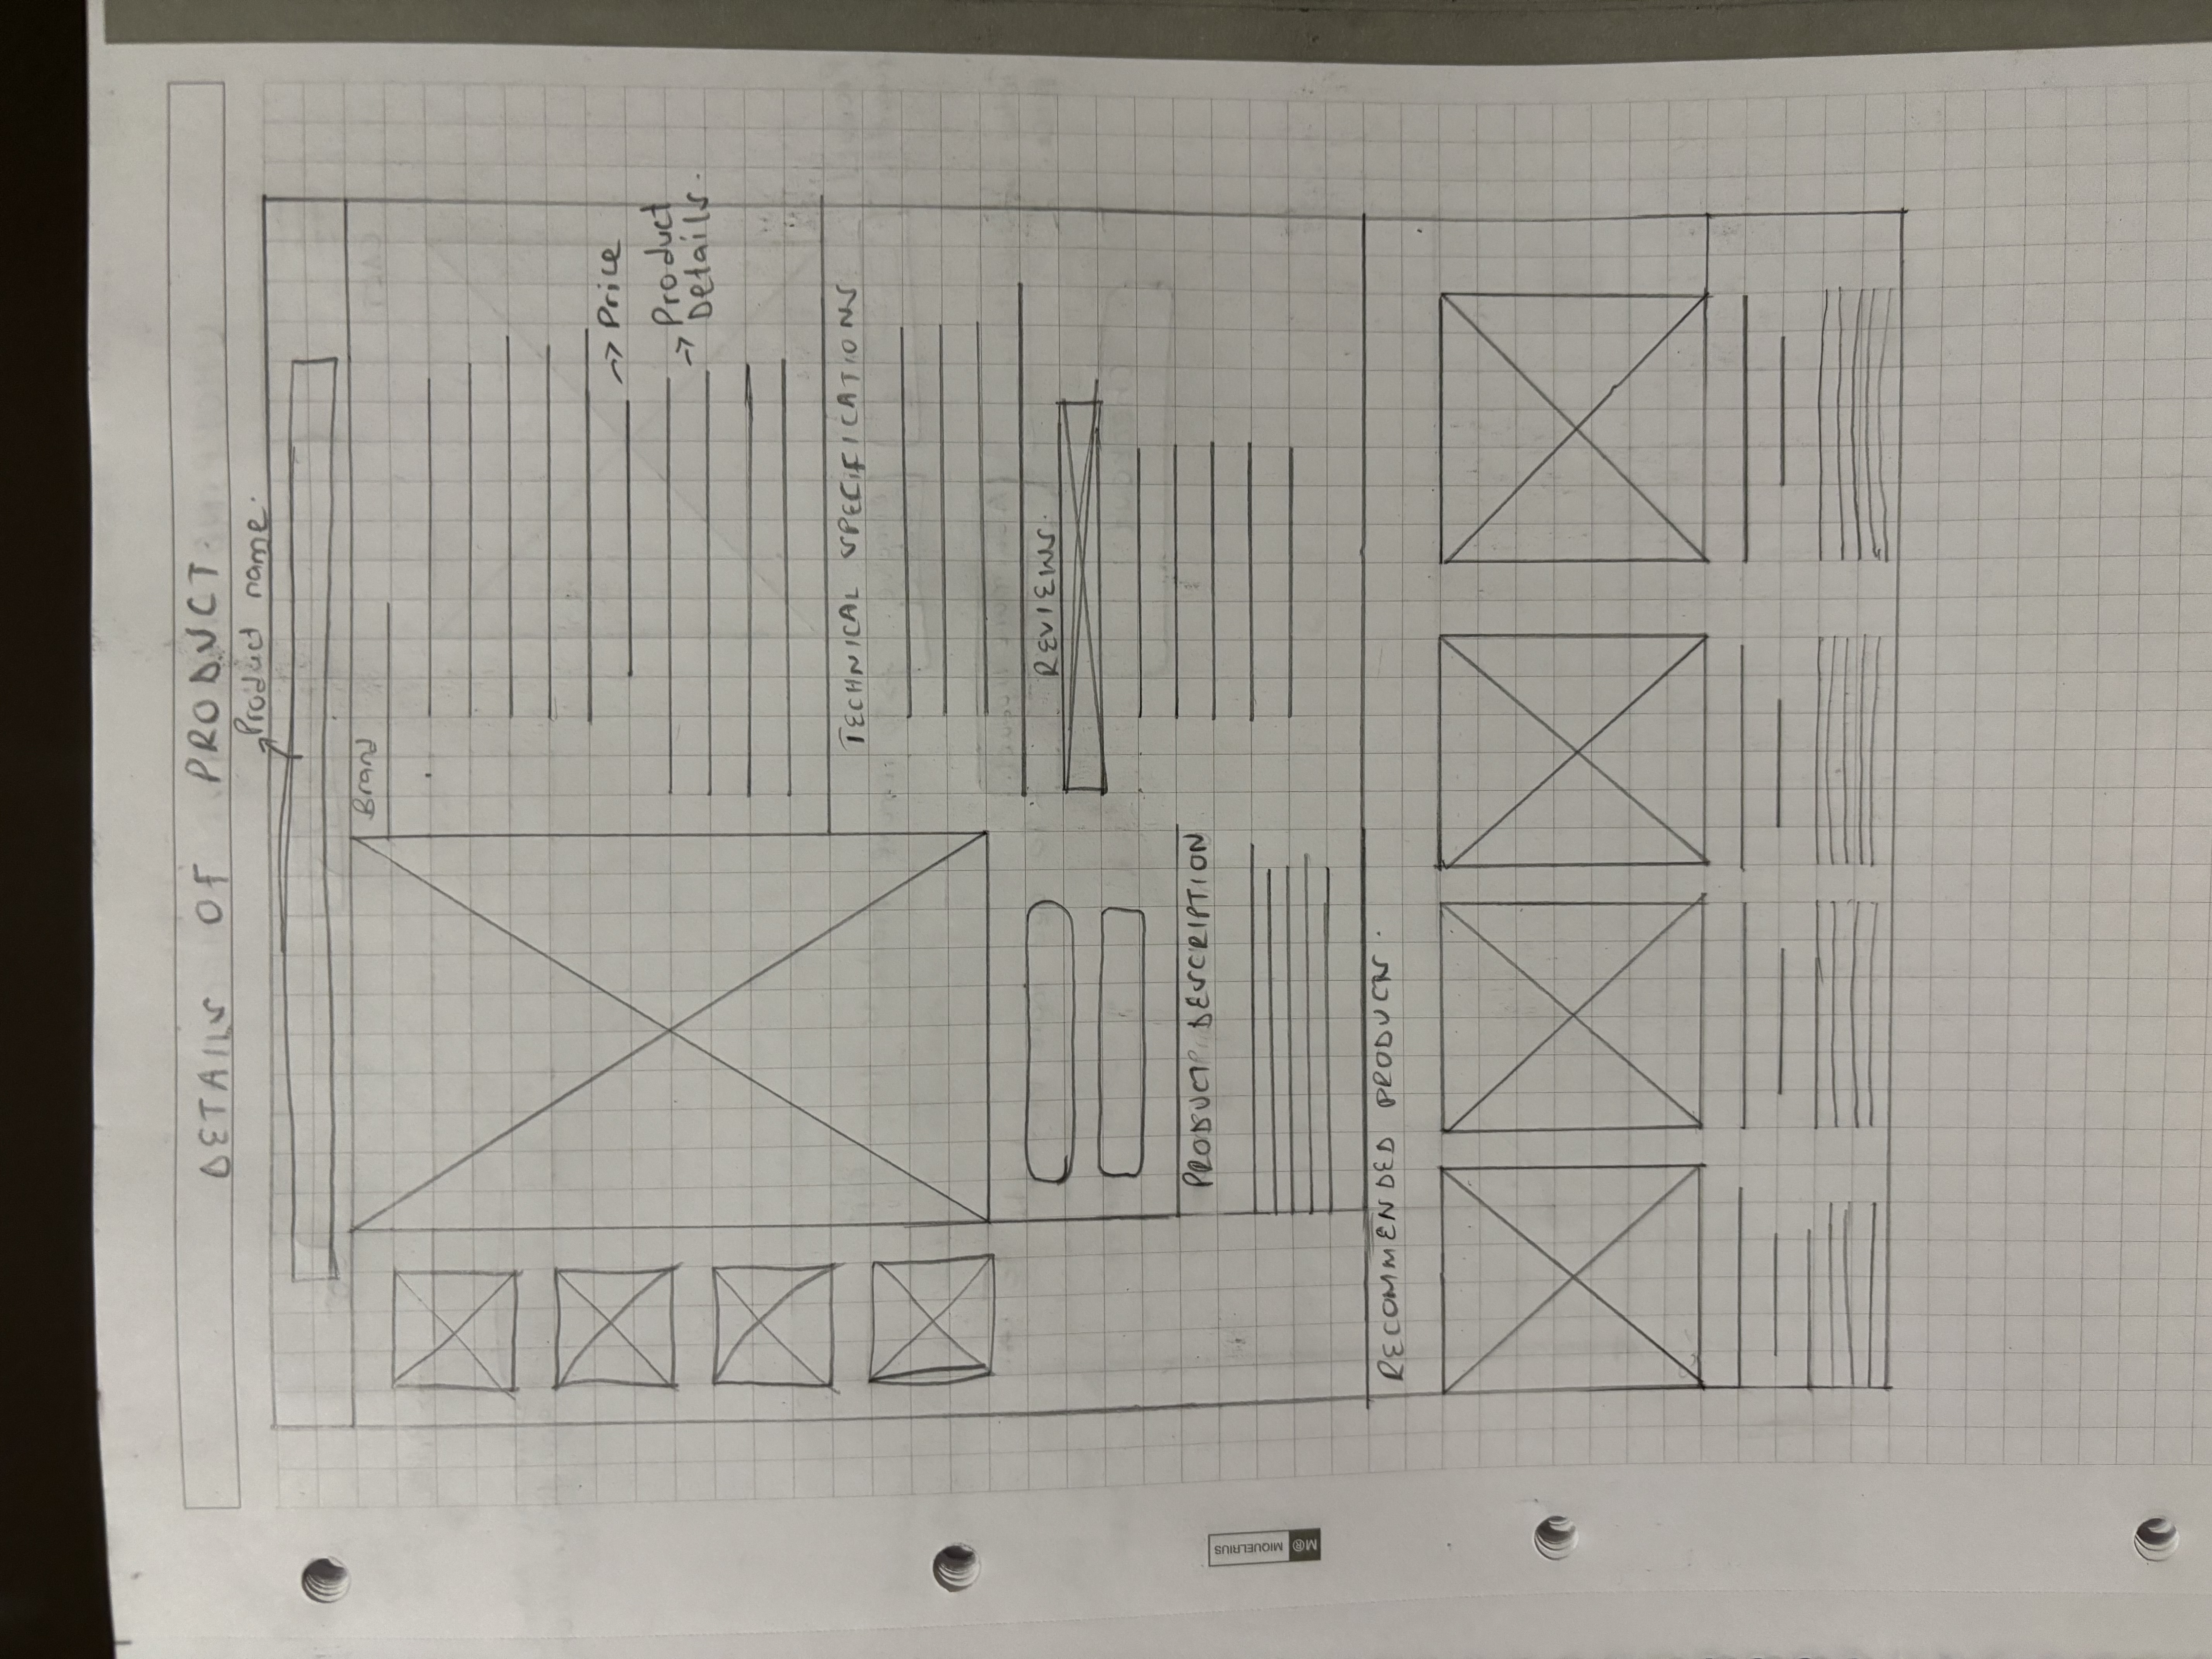 DETAILS OF PRODUCT.
Product name.
Brand
Price
Product
Details.
TECHNICAL SPECIFICATIONS
REVIEWS.
PRODUCT DESCRIPTION
RECOMMENDED PRODUCTS.
M® MIQUELRIUS